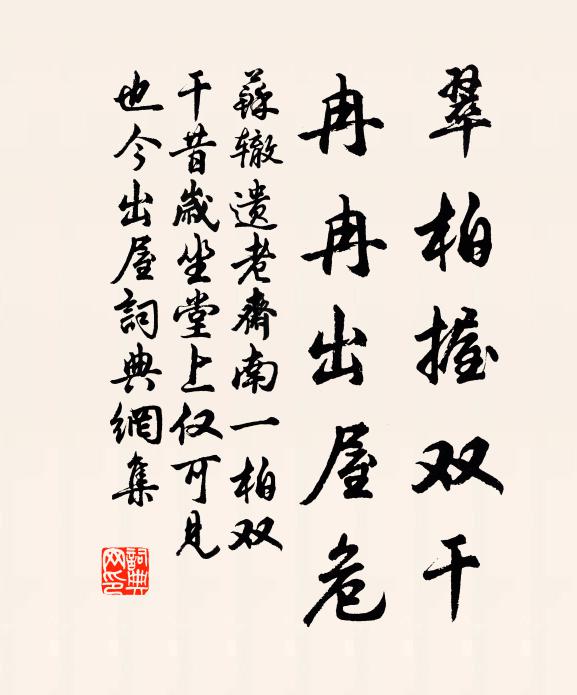 翠柏握双干
冉冉出屋危
蘇辙遗老齋南一柏双
干昔歲坐堂上仅可見
也今出屋詞典網集
詞典网印